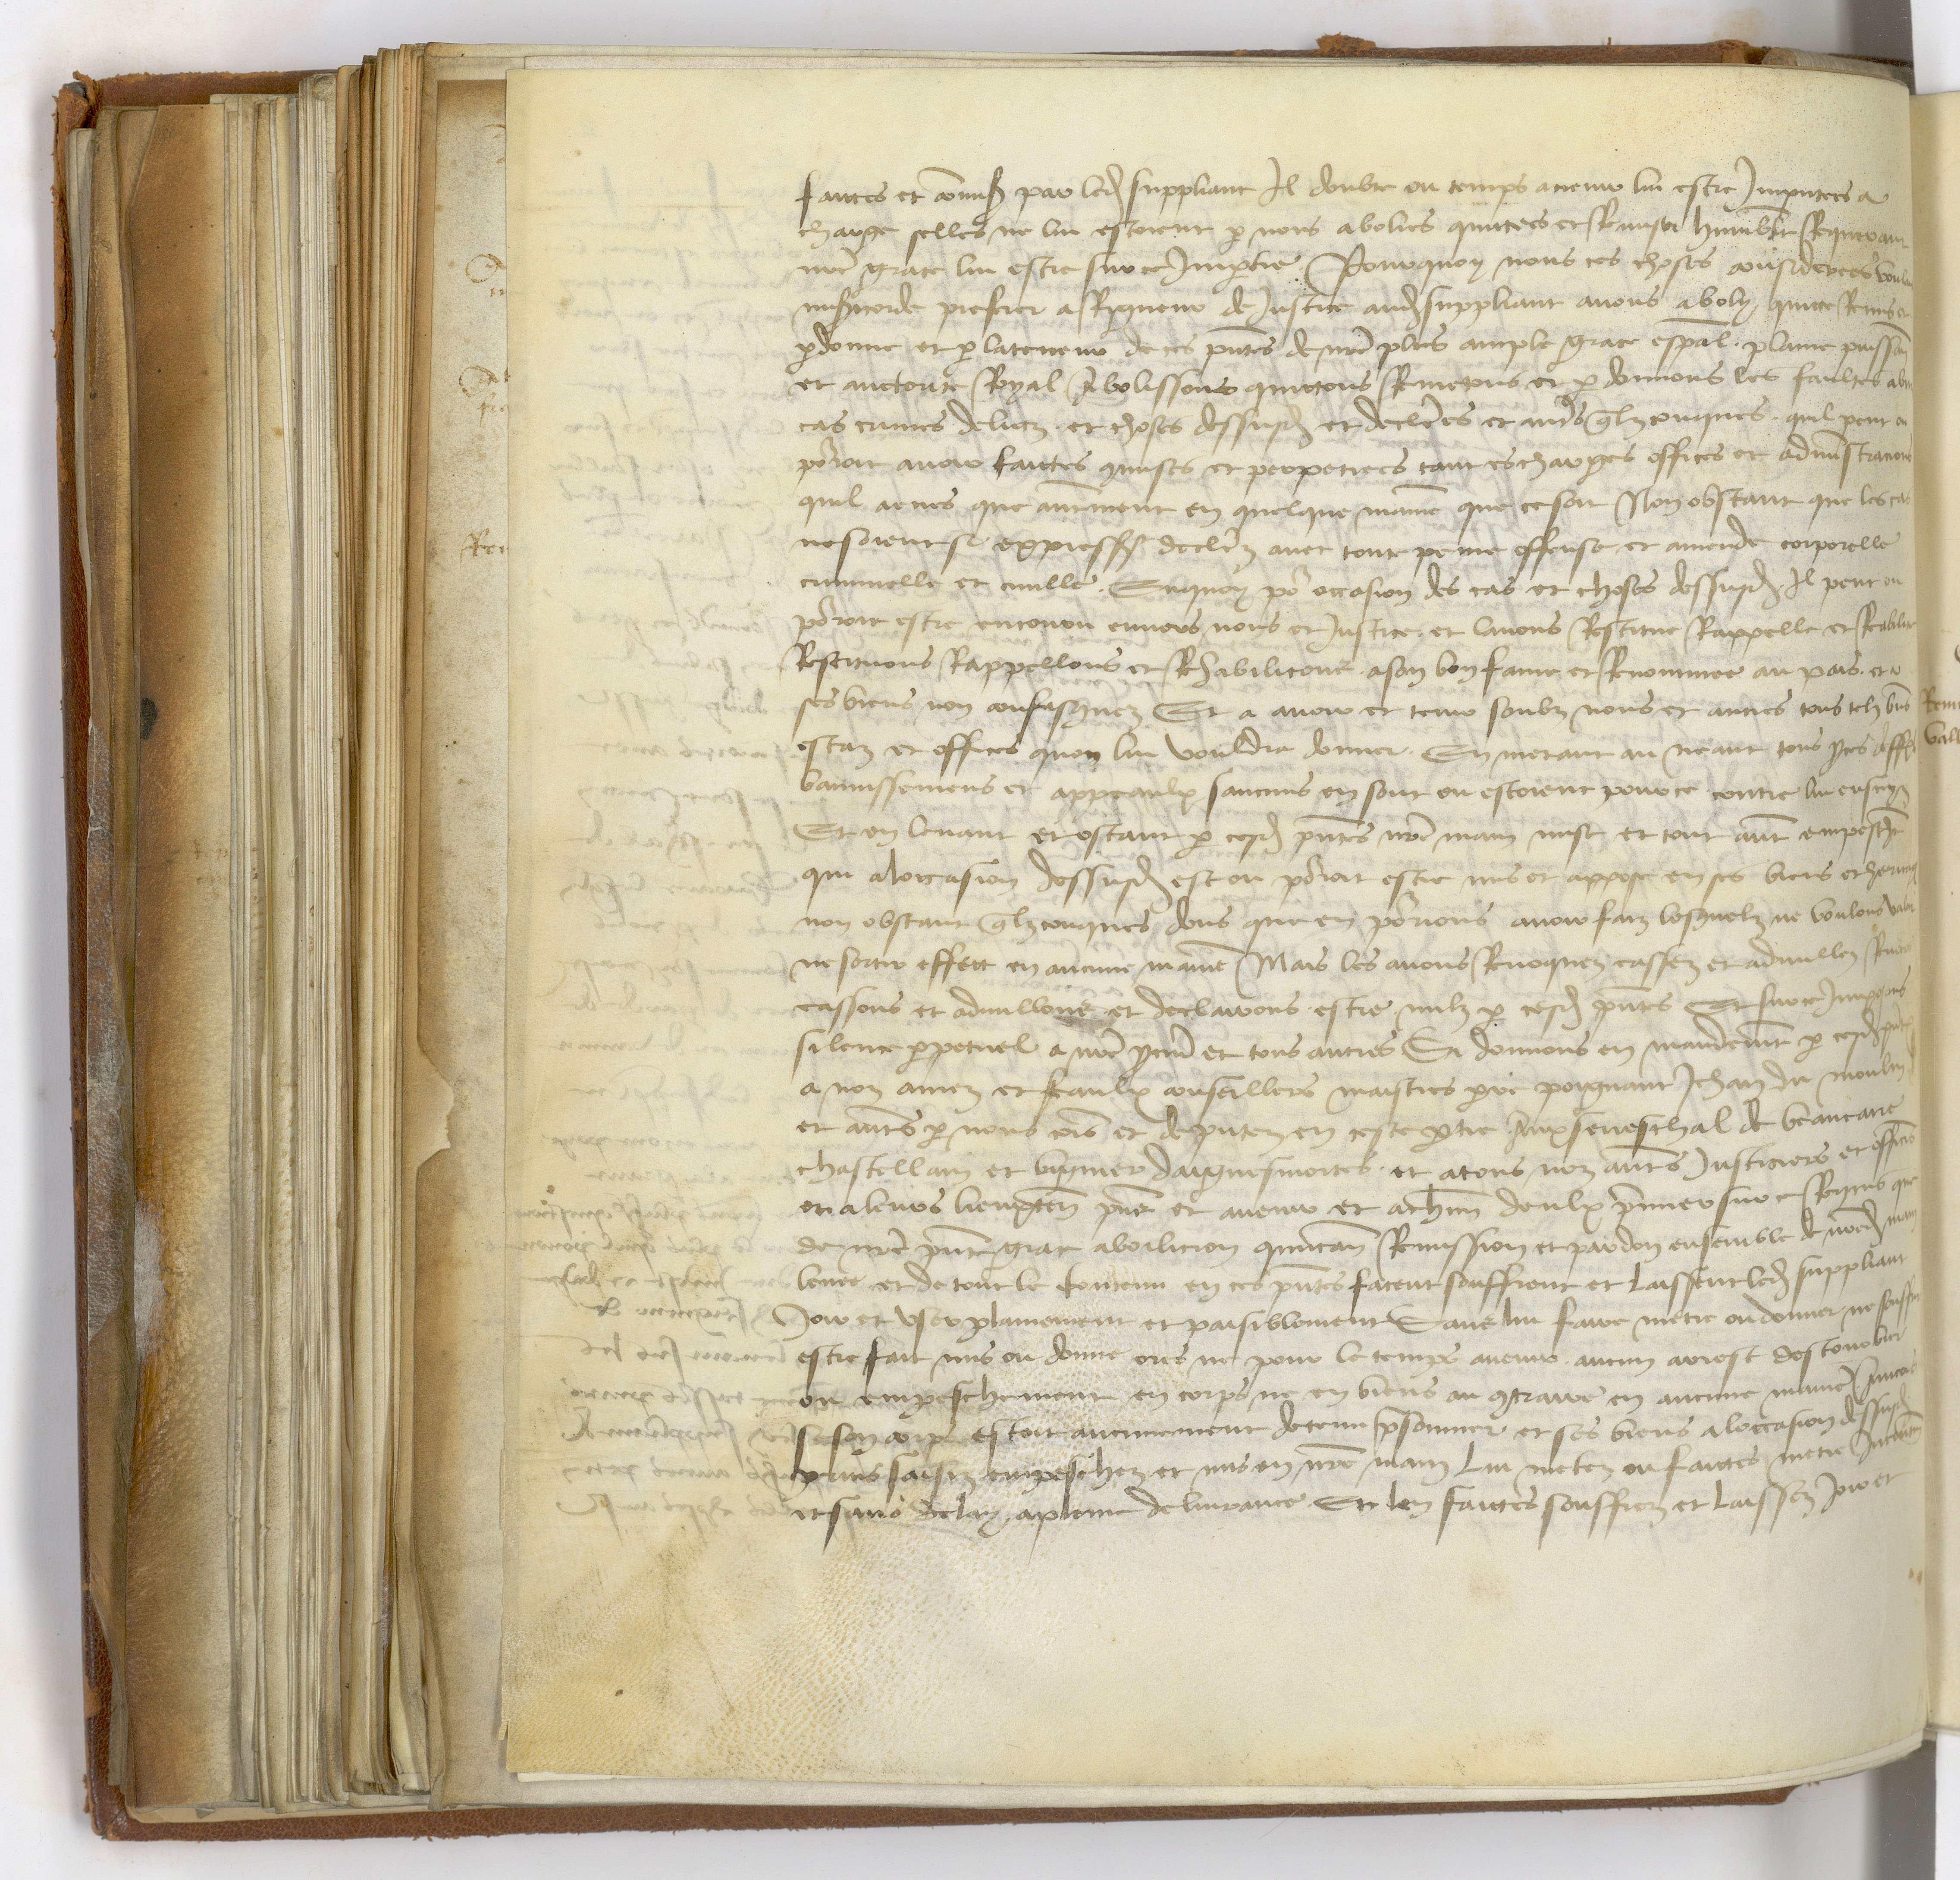 faictes et commises par led suppliant Il doubte ou temps avenir lui estre Imputees a
charge selles ne lui estoient p nous abolies quictees et Remises humblemt Requerant
nre grace lui estre sur ce Impartie Pourquoy nous ces choses considerees voulans
misericorde preferer a Rigueur de Justice aud suppliant avons aboly quicte Remis et
pdonne et p la teneur de ces pntes de nre plus ample grace espal plaine puissance
et auctorite Royal Abolissons quictons Remetons et pdonnons les faultes abuz
cas crimes delictz et choses dessusd et declerees et autres qlzconques quil peut ou
porroit avoir faictes commises et perpetrees tant es charges offices et administracions
quil a eues que autrement en quelque maniere que ce soit Non obstant que les cas
ne soient si expressemt declerez avec toute peine offense et amende corporelle
criminelle et civille Enquoy por occasion des cas et choses dessusd Il peut ou
porroit estre encouru envers nous et Justice et lavons Restitue Rappelle et Reabilite
Restituons Rappellons et Rehabilitons a son bon fame et Renommee au pais et a
ses biens non confisquez Et a avoir et tenir soubz nous et autres tous telz biens
estaz et offices quon lui vouldra donner En metant au neant tous proces deffaulx
bannissemens et appeaulx saucuns en sont ou estoient pource contre lui ensuyz
Et en levant et ostant p cesd pntes nre main mise et tout autre empeschemt
qui a loccasion dessusd est ou porroit estre mis et appose en ses biens et heritages
non obstant qlzconques dons que en porrions avoir faiz lesquelz ne voulons valoir
ne sortir effect en aucune maniere Mais les avons Revoquez cassez et adnullez Revoquons
cassons et adnullons et declairons estre nulz p cesd pntes Et sur ce Imposons
silence ppetuel a nre procureur et tous autres Si donnons en mandement p cesd pntes
a noz amez et feaulx conseillers maistres pre poignant Jehan du moulin
et autres p nous commis et deputez en ceste ptie Aux seneschal de beaucaire
chastellain et viguier daiguesmortes et a tous noz autres Justiciers et officiers
ou a leurs lieuxtenans pns et avenir et a chun deulx premier sur ce Requis que
de nre pnte grace abolicion quictance Remission et pardon ensemble de nred main
levee et de tout le contenu en ces pntes facent souffrent et laissent led suppliant
Joir et user plainement et paisiblement Sans lui faire metre ou donner ne souffrir
estre fait mis ou donne ores ne pour le temps avenir aucun arrest destourbier
ou empeschement en corps ne en biens au contraire en aucune maniere Aincois
se son corps estoit aucunement detenu prisonnier et ses biens a loccasion dessusd
prins saisiz empeschez et mis en nre main Lui metez ou faictes metre Incontinent
et sans delay a pleine delivrance Et len faictes souffrez et laissez Joir et